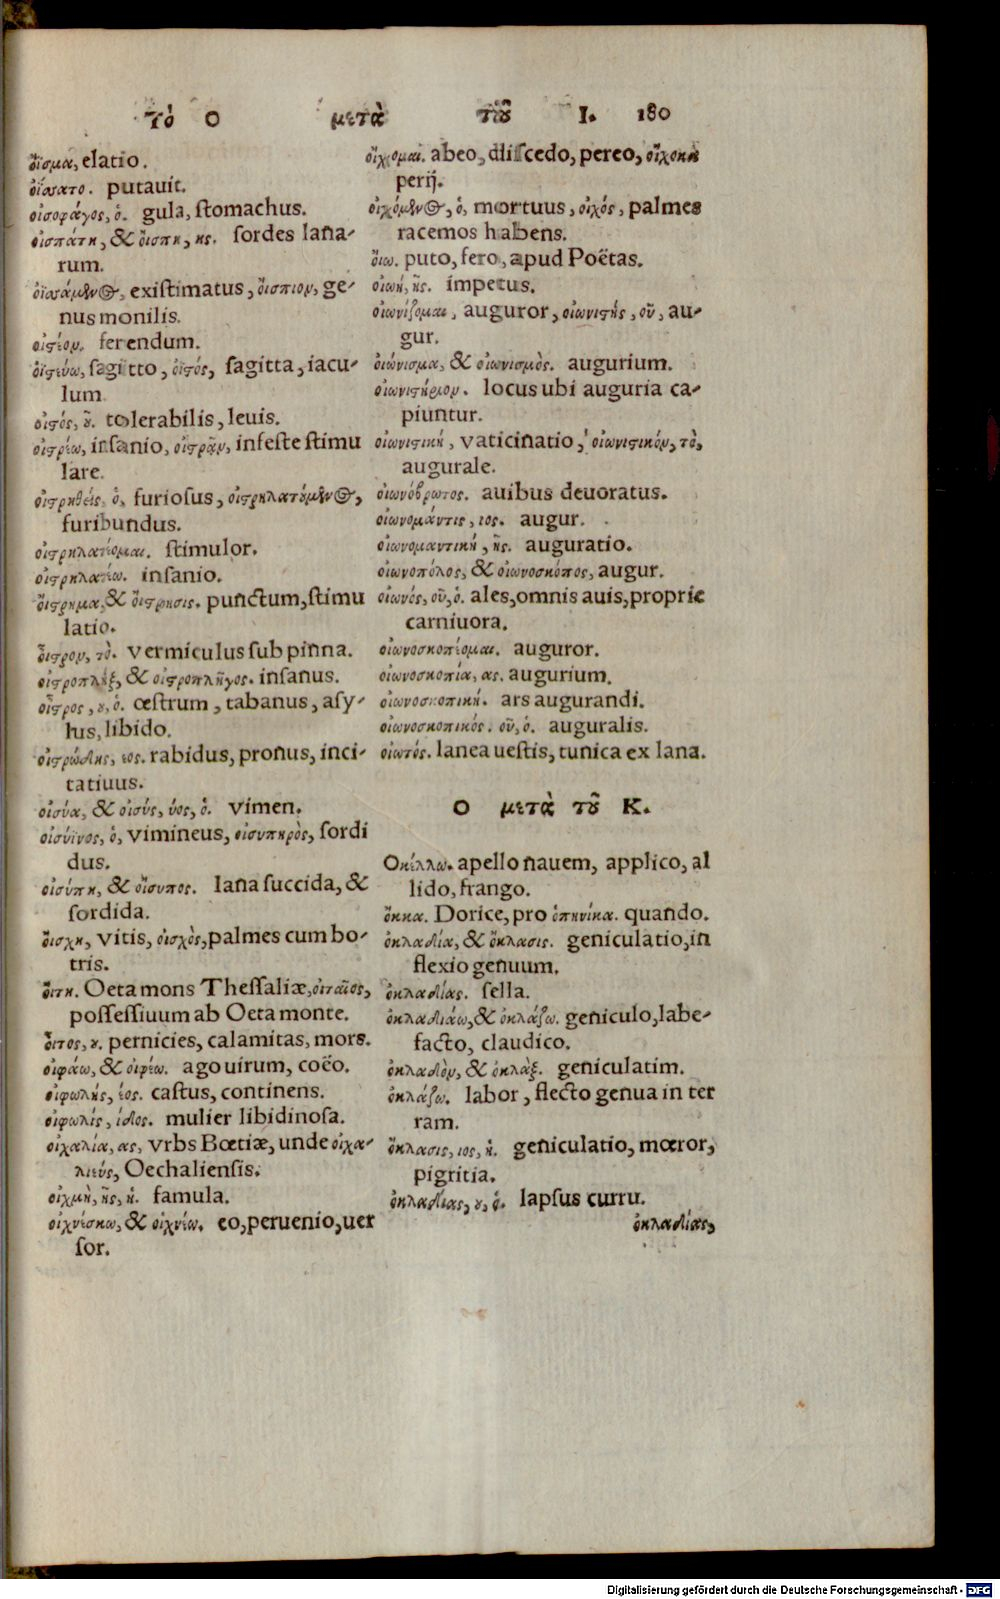 τὸ Ο μετὰ τοῦ Ι. 180
οἶσμα, elatio.
οἴσατο. putauit.
οἰσοφάγος, ὁ. gula, ſtomachus.
οἰσπάτη, & οἴσπη, ης. ſordes lana-
rum.
οἰσάμενος, exiſtimatus, οἴσπιον, ge-
nus monilis.
οἰστέον. ferendum.
οἰστεύω, ſagitto, οἰστός, ſagitta, iacu-
lum
οἰστός, οῦ. tolerabilis, leuis.
οἰστρέω, inſanio, οἰστρᾷν, infeſte ſtimu
lare.
οἰστρηθείς, ὁ, furioſus, οἰστρηλατούμενος,
furibundus.
οἰστρηλατέομαι. ſtimulor.
οἰστρηλατέω. inſanio.
οἴστρημα, & οἴστρησις. punctum, ſtimu
latio.
οἶστρον, τὸ. vermiculus ſub pinna.
οἰστροπλὴξ, & οἰστροπλῆγος. inſanus.
οἶστρος, ου, ὁ. œſtrum, tabanus, aſy-
lus, libido.
οἰστρώδης, εος. rabidus, pronus, inci-
tatiuus.
οἰσύα, & οἰσύς, ύος, ὁ. vimen.
οἰσύϊνος, ὁ, vimineus, οἰσυπηρὸς, ſordi
dus.
οἰσύπη, & οἴσυπος. lana ſuccida, &
ſordida.
οἴσχη, vitis, οἰσχὸς, palmes cum bo-
tris.
οἴτη. Oeta mons Theſſaliæ, οἰταῖος,
poſſeſſiuum ab Oeta monte.
οἶτος, ου. pernicies, calamitas, mors.
οἰφάω, & οἰφέω. ago uirum, coëo.
οἰφωλής, έος. caſtus, continens.
οἰφωλίς, ίδος. mulier libidinoſa.
οἰχαλία, ας, vrbs Bœtiæ, unde οἰχα-
λιεύς, Oechalienſis.
οἰχμὴ, ῆς, ἡ. famula.
οἰχνέσκω, & οἰχνέω. eo, peruenio, uer
ſor.
οἴχομαι. abeo, diſcedo, pereo, οἴχοκα
perij.
οἰχόμενος, ὁ, mortuus, οἰχός, palmes
racemos habens.
οἴω. puto, fero, apud Poëtas.
οἰωή, ῆς. impetus.
οἰωνίζομαι, auguror, οἰωνιστής, οῦ, au-
gur.
οἰώνισμα, & οἰωνισμὸς. augurium.
οἰωνιστήριον. locus ubi auguria ca-
piuntur.
οἰωνιστική, vaticinatio, οἰωνιστικόν, τὸ,
augurale.
οἰωνόβρωτος. auibus deuoratus.
οἰωνομάντις, ιος. augur.
οἰωνομαντική, ῆς. auguratio.
οἰωνοπόλος, & οἰωνοσκόπος, augur.
οἰωνός, οῦ, ὁ. ales, omnis auis, proprie
carniuora.
οἰωνοσκοπέομαι. auguror.
οἰωνοσκοπία, ας. augurium.
οἰωνοσκοπική. ars augurandi.
οἰωνοσκοπικός. οῦ, ὁ. auguralis.
οἰωτός. lanea ueſtis, tunica ex lana.
Ο μετὰ τοῦ Κ.
Οκέλλω. apello nauem, applico, al
lido, frango.
ὄκκα. Dorice, pro ὁπηνίκα. quando.
ὀκλαδία, & ὄκλασις. geniculatio, in
flexio genuum.
ὀκλαδίας. ſella.
ὀκλαδιάω, & ὀκλάζω. geniculo, labe-
facto, claudico.
ὀκλαδὸν, & ὀκλὰξ. geniculatim.
ὀκλάζω. labor, flecto genua in ter
ram.
ὄκλασις, ιος, ἡ. geniculatio, mœror,
pigritia.
ὀκλαδίας, ου, ὁ. lapſus curru.
ὀκλαδίας,
Digitalisierung gefördert durch die Deutsche Forschungsgemeinschaft - DFG